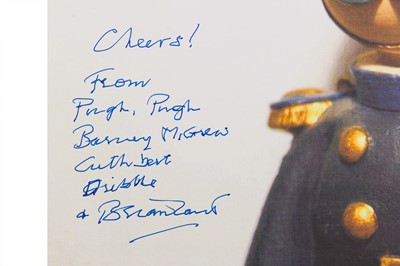 Cheers!
From
Pugh, Pugh
Barney McGrew
Cuthbert
Dribble
+ Brian Cant